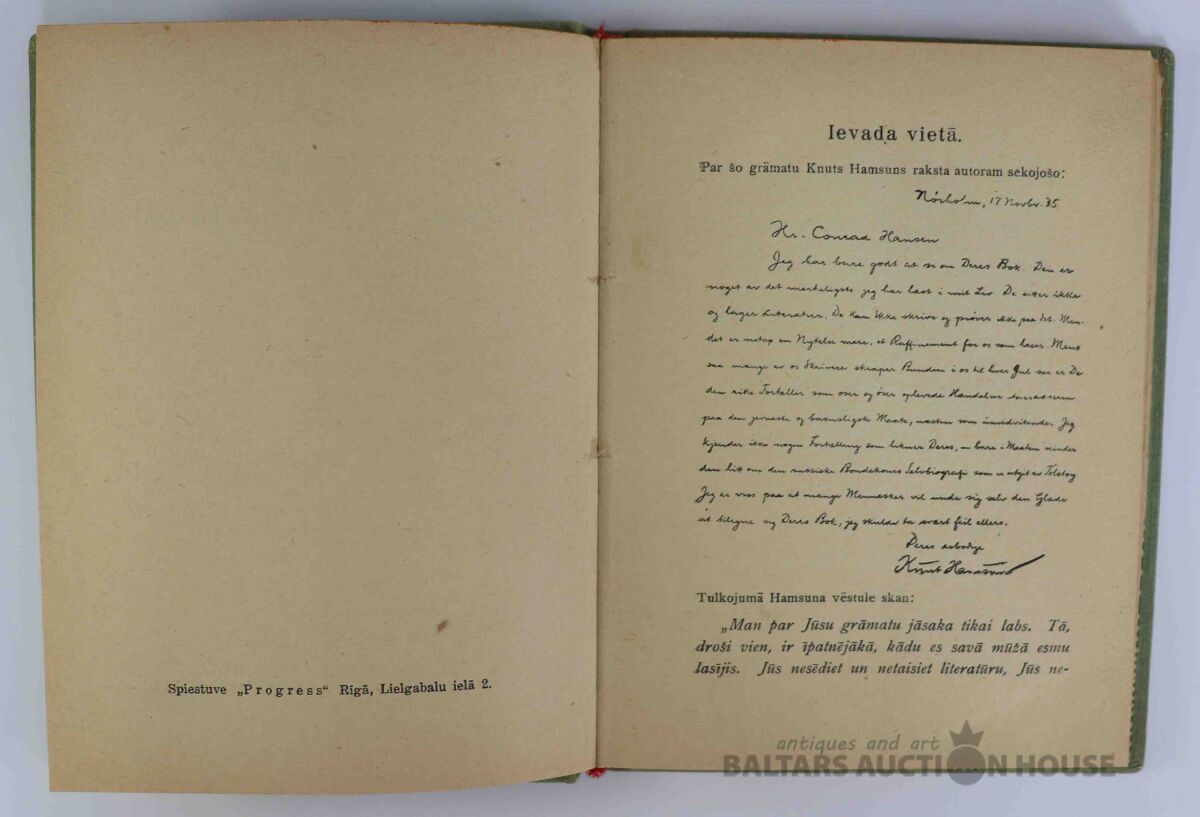 Spiestuve „Progress“ Rīgā, Lielgabalu ielā 2.
Ievada vietā.
Par šo grāmatu Knuts Hamsuns raksta autoram sekojošo:
Nörholm, 17 Novbr. 35
Hr. Conrad Hansen
Jeg har bare godt at si om Deres Bok. Den er
noget av det merkeligste jeg har læst i mit Liv. De sitter ikke
og lager Literatur. De kan ikke skrive og prøver ikke paa det. Men
det er netop en Nytelse mere, et Raffinement for os som læser. Mens
saa mange av os Skrivere skraper Bunden i os til hver Jul saa er De
den rike Fortæller som øser og øser oplevede Hændelser
paa den jevneste og barnsligste Maate, næsten som uvidende. Jeg
kjender ikke nogen Fortælling som likner Deres, bare i Maaten minder
den litt om den russiske Bondekones Selvbiografi som er utgit av Tolstoy
Jeg er viss paa at mange Mennesker vil unde sig selv den Glæde
at tilegne sig Deres Bok, jeg skulde ta svært feil ellers.
Deres ærbødige
Knut Hamsun
Tulkojumā Hamsuna vēstule skan:
„Man par Jūsu grāmatu jāsaka tikai labs. Tā,
droši vien, ir īpatnējākā, kādu es savā mūžā esmu
lasījis. Jūs nesēdiet un netaisiet literatūru, Jūs ne-
antiques and art
BALTARS AUCTION HOUSE